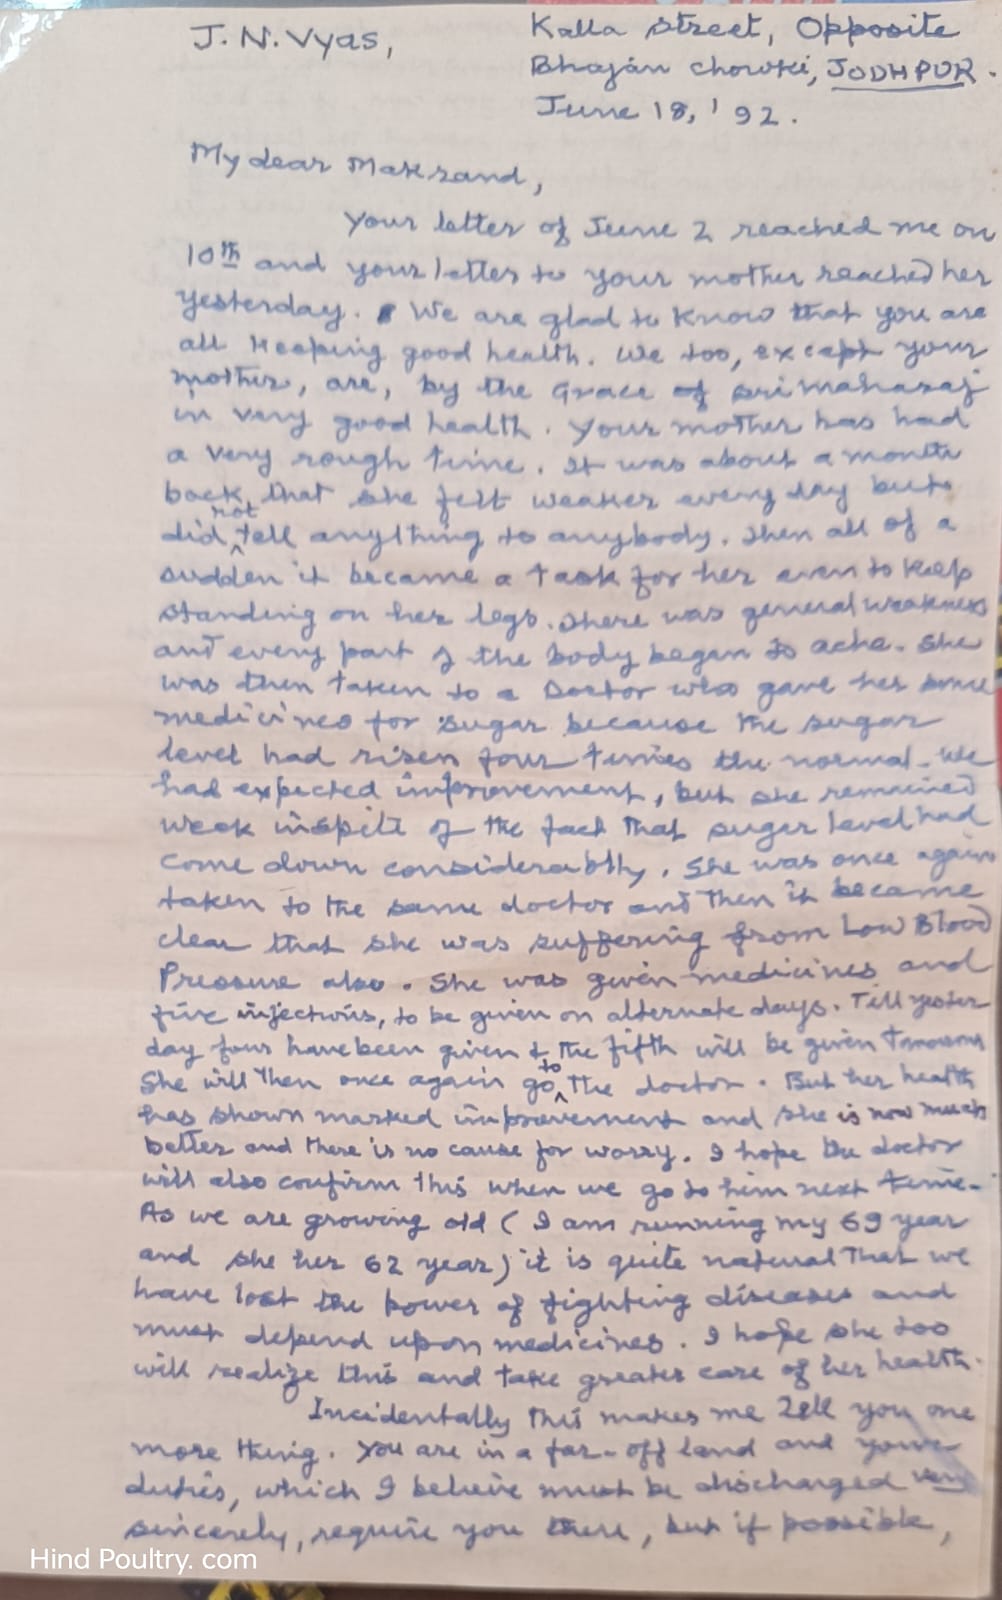 J. N. Vyas,
Kalla Street, Opposite
Bhajan Chowki, JODHPUR.
June 18, '92.
My dear Makrand,
Your letter of June 2 reached me on
10th and your letter to your mother reached her
yesterday. We are glad to know that you are
all keeping good health. We too, except your
mother, are, by the Grace of Sri Maharaj
in very good health. Your mother has had
a very rough time. It was about a month
back that she felt weaker every day but
did not tell anything to anybody. Then all of a
sudden it became a task for her even to keep
standing on her legs. There was general weakness
and every part of the body began to ache. She
was then taken to a Doctor who gave her some
medicines for sugar because the sugar
level had risen four times the normal. We
had expected improvement, but she remained
weak inspite of the fact that sugar level had
come down considerably. She was once again
taken to the same doctor and then it became
clear that she was suffering from Low Blood
Pressure also. She was given medicines and
five injections, to be given on alternate days. Till yester
day four have been given & the fifth will be given tomorrow
She will then once again go to the doctor. But her health
has shown marked improvement and she is now much
better and there is no cause for worry. I hope the doctor
will also confirm this when we go to him next time.
As we are growing old (I am running my 69 year
and she her 62 year) it is quite natural that we
have lost the power of fighting diseases and
must depend upon medicines. I hope she too
will realize this and take greater care of her health.
Incidentally this makes me tell you one
more thing. You are in a far-off land and your
duties, which I believe must be discharged very
sincerely, require you there, but if possible,
Hind Poultry. com